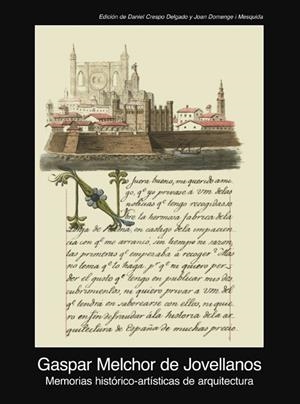 Edición de Daniel Crespo Delgado y Joan Domenge i Mesquida
No fuera bueno, mi querido ami-
go, q.e yo privase á Vm de las
noticias q.e tengo recogidas so-
bre la hermosa fabrica de la
Lonja de Palma, en castigo de la impacien-
cia con q.e me arrancó, sin tiempo ni sazon,
las primeras q.e empezaba á recoger? Mas
no tema q.e lo haga, p.r q.e ni quiero per-
der el gusto q.e tengo en publicar mis des-
cubrimientos, ni quiero privar á Vm del
q.e tendrá en saborearse con ellos, ni quie-
ro en fin defraudar á la historia de la ar-
quitectura de España de muchas precio
Gaspar Melchor de Jovellanos
Memorias histórico-artísticas de arquitectura